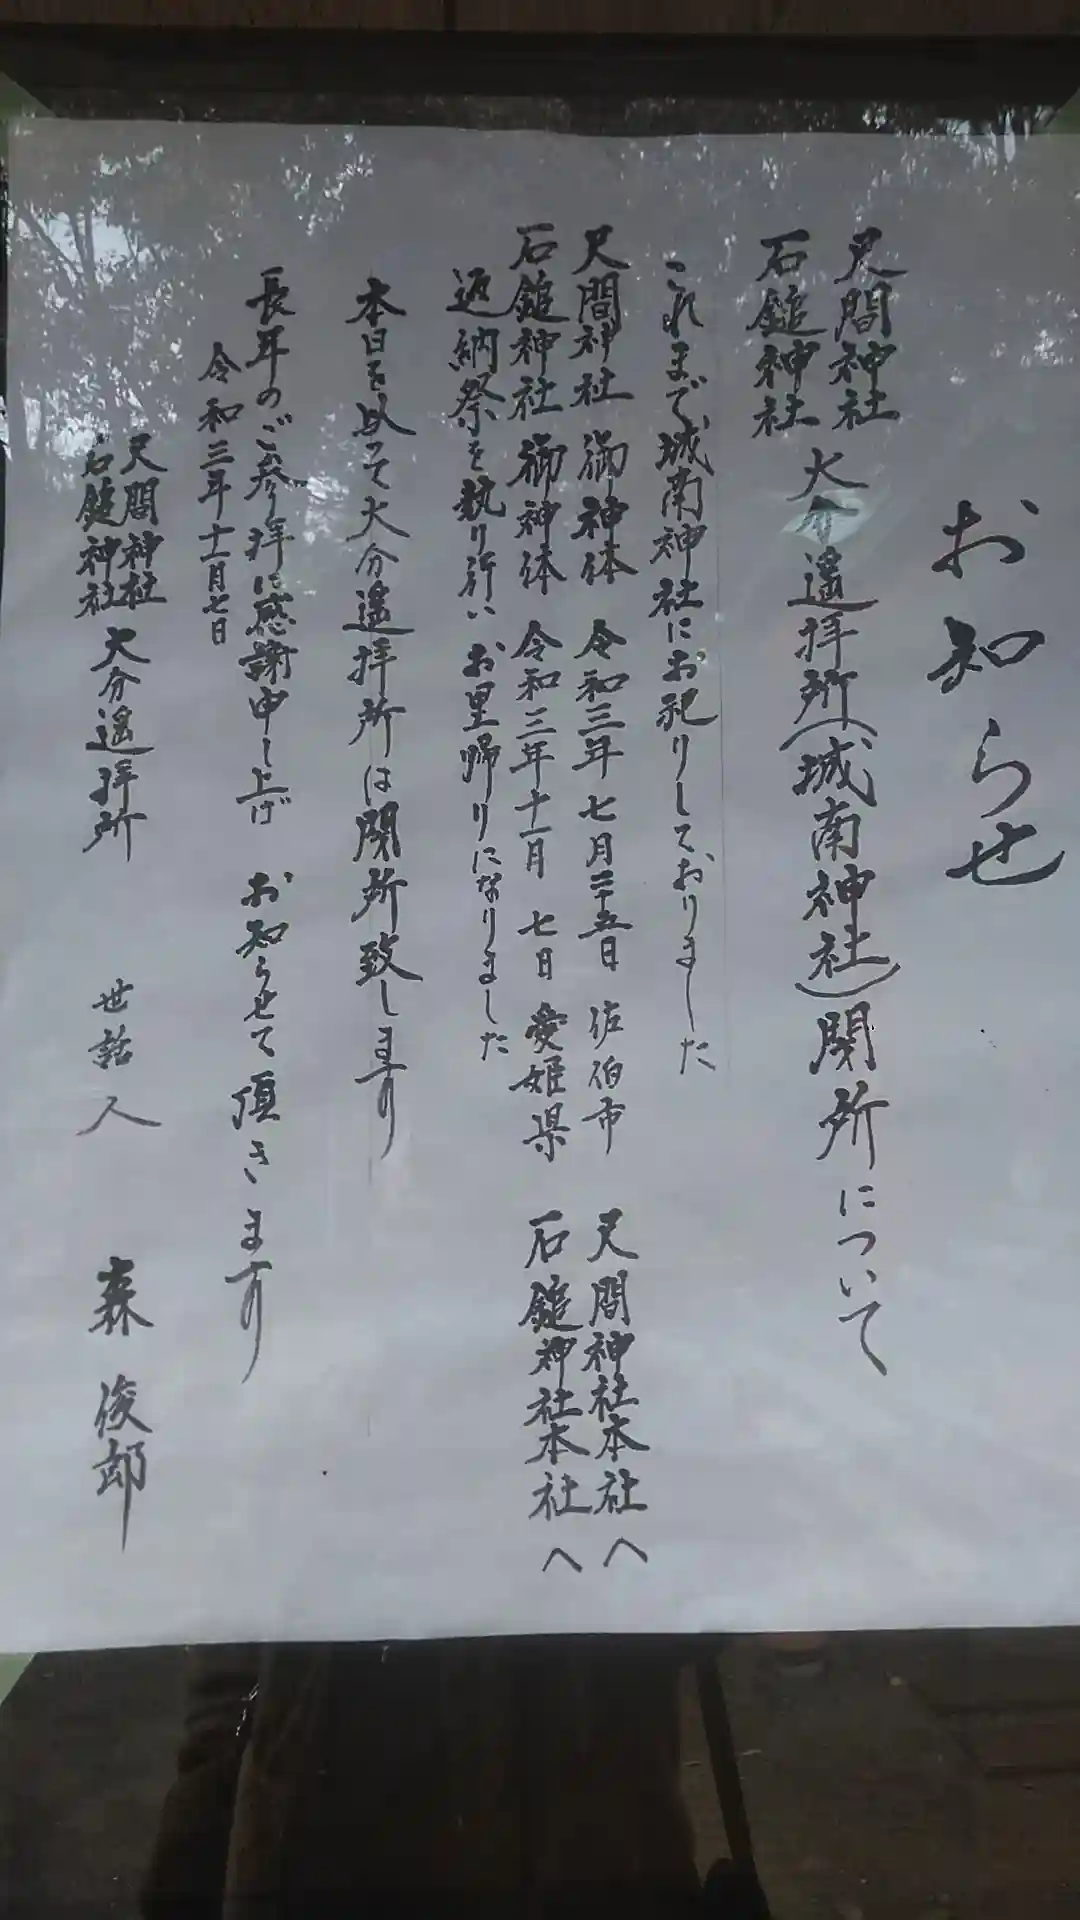 お知らせ
尺間神社
石鎚神社 大分遥拝所(城南神社)閉所について
これまで、城南神社にお祀りしておりました
尺間神社 御神体 令和三年 七月二十五日 佐伯市 尺間神社本社へ
石鎚神社 御神体 令和三年十一月 七日 愛媛県 石鎚神社本社へ
返納祭を執り行い お里帰りになりました
本日を以って大分遥拝所は閉所致します
長年のご参拝に感謝申し上げ お知らせて頂きます
令和三年十一月七日
尺間神社
石鎚神社 大分遥拝所 世話人 森 俊郎